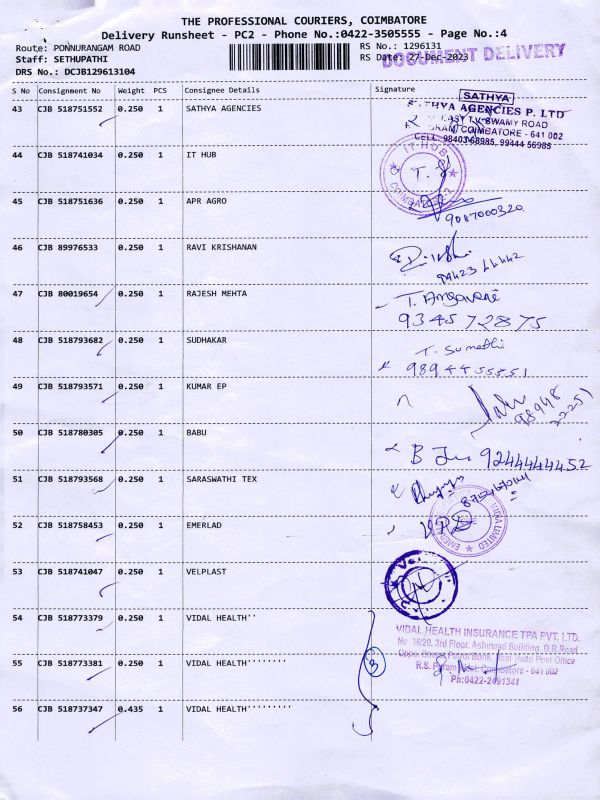 THE PROFESSIONAL COURIERS, COIMBATORE
Delivery Runsheet - PC2 - Phone No.:0422-3505555 - Page No.:4
Route: PONNURANGAM ROAD
Staff: SETHUPATHI
DRS No.: DCJB129613104
RS No.: 1296131
RS Date: 27-Dec-2023
DOCUMENT DELIVERY
S No Consignment No Weight PCS Consignee Details Signature
43 CJB 518751552 0.250 1 SATHYA AGENCIES
SATHYA
AGENCIES P. LTD
SWAMY ROAD
COIMBATORE - 641 002
CELL: 98403 68985, 99444 56985
44 CJB 518741034 0.250 1 IT HUB
IT HUB
45 CJB 518751636 0.250 1 APR AGRO
9087000320
46 CJB 89976533 0.250 1 RAVI KRISHANAN
94423 44442
47 CJB 80019654 0.250 1 RAJESH MEHTA
934572875
48 CJB 518793682 0.250 1 SUDHAKAR
T. Sumathi
9894455551
49 CJB 518793571 0.250 1 KUMAR EP
98948
22251
50 CJB 518780305 0.250 1 BABU
9244444452
51 CJB 518793568 0.250 1 SARASWATHI TEX
52 CJB 518758453 0.250 1 EMERLAD
INDIA LIMITED
53 CJB 518741047 0.250 1 VELPLAST
54 CJB 518773379 0.250 1 VIDAL HEALTH''
55 CJB 518773381 0.250 1 VIDAL HEALTH''''''''
56 CJB 518737347 0.435 1 VIDAL HEALTH'''''''''
3
VIDAL HEALTH INSURANCE TPA PVT. LTD.
No 36/20, 3rd Floor, Ashirwad Building, D.B.Road
Head Post Office
R.S. Puram Coimbatore - 641 002
Ph:0422-2491341